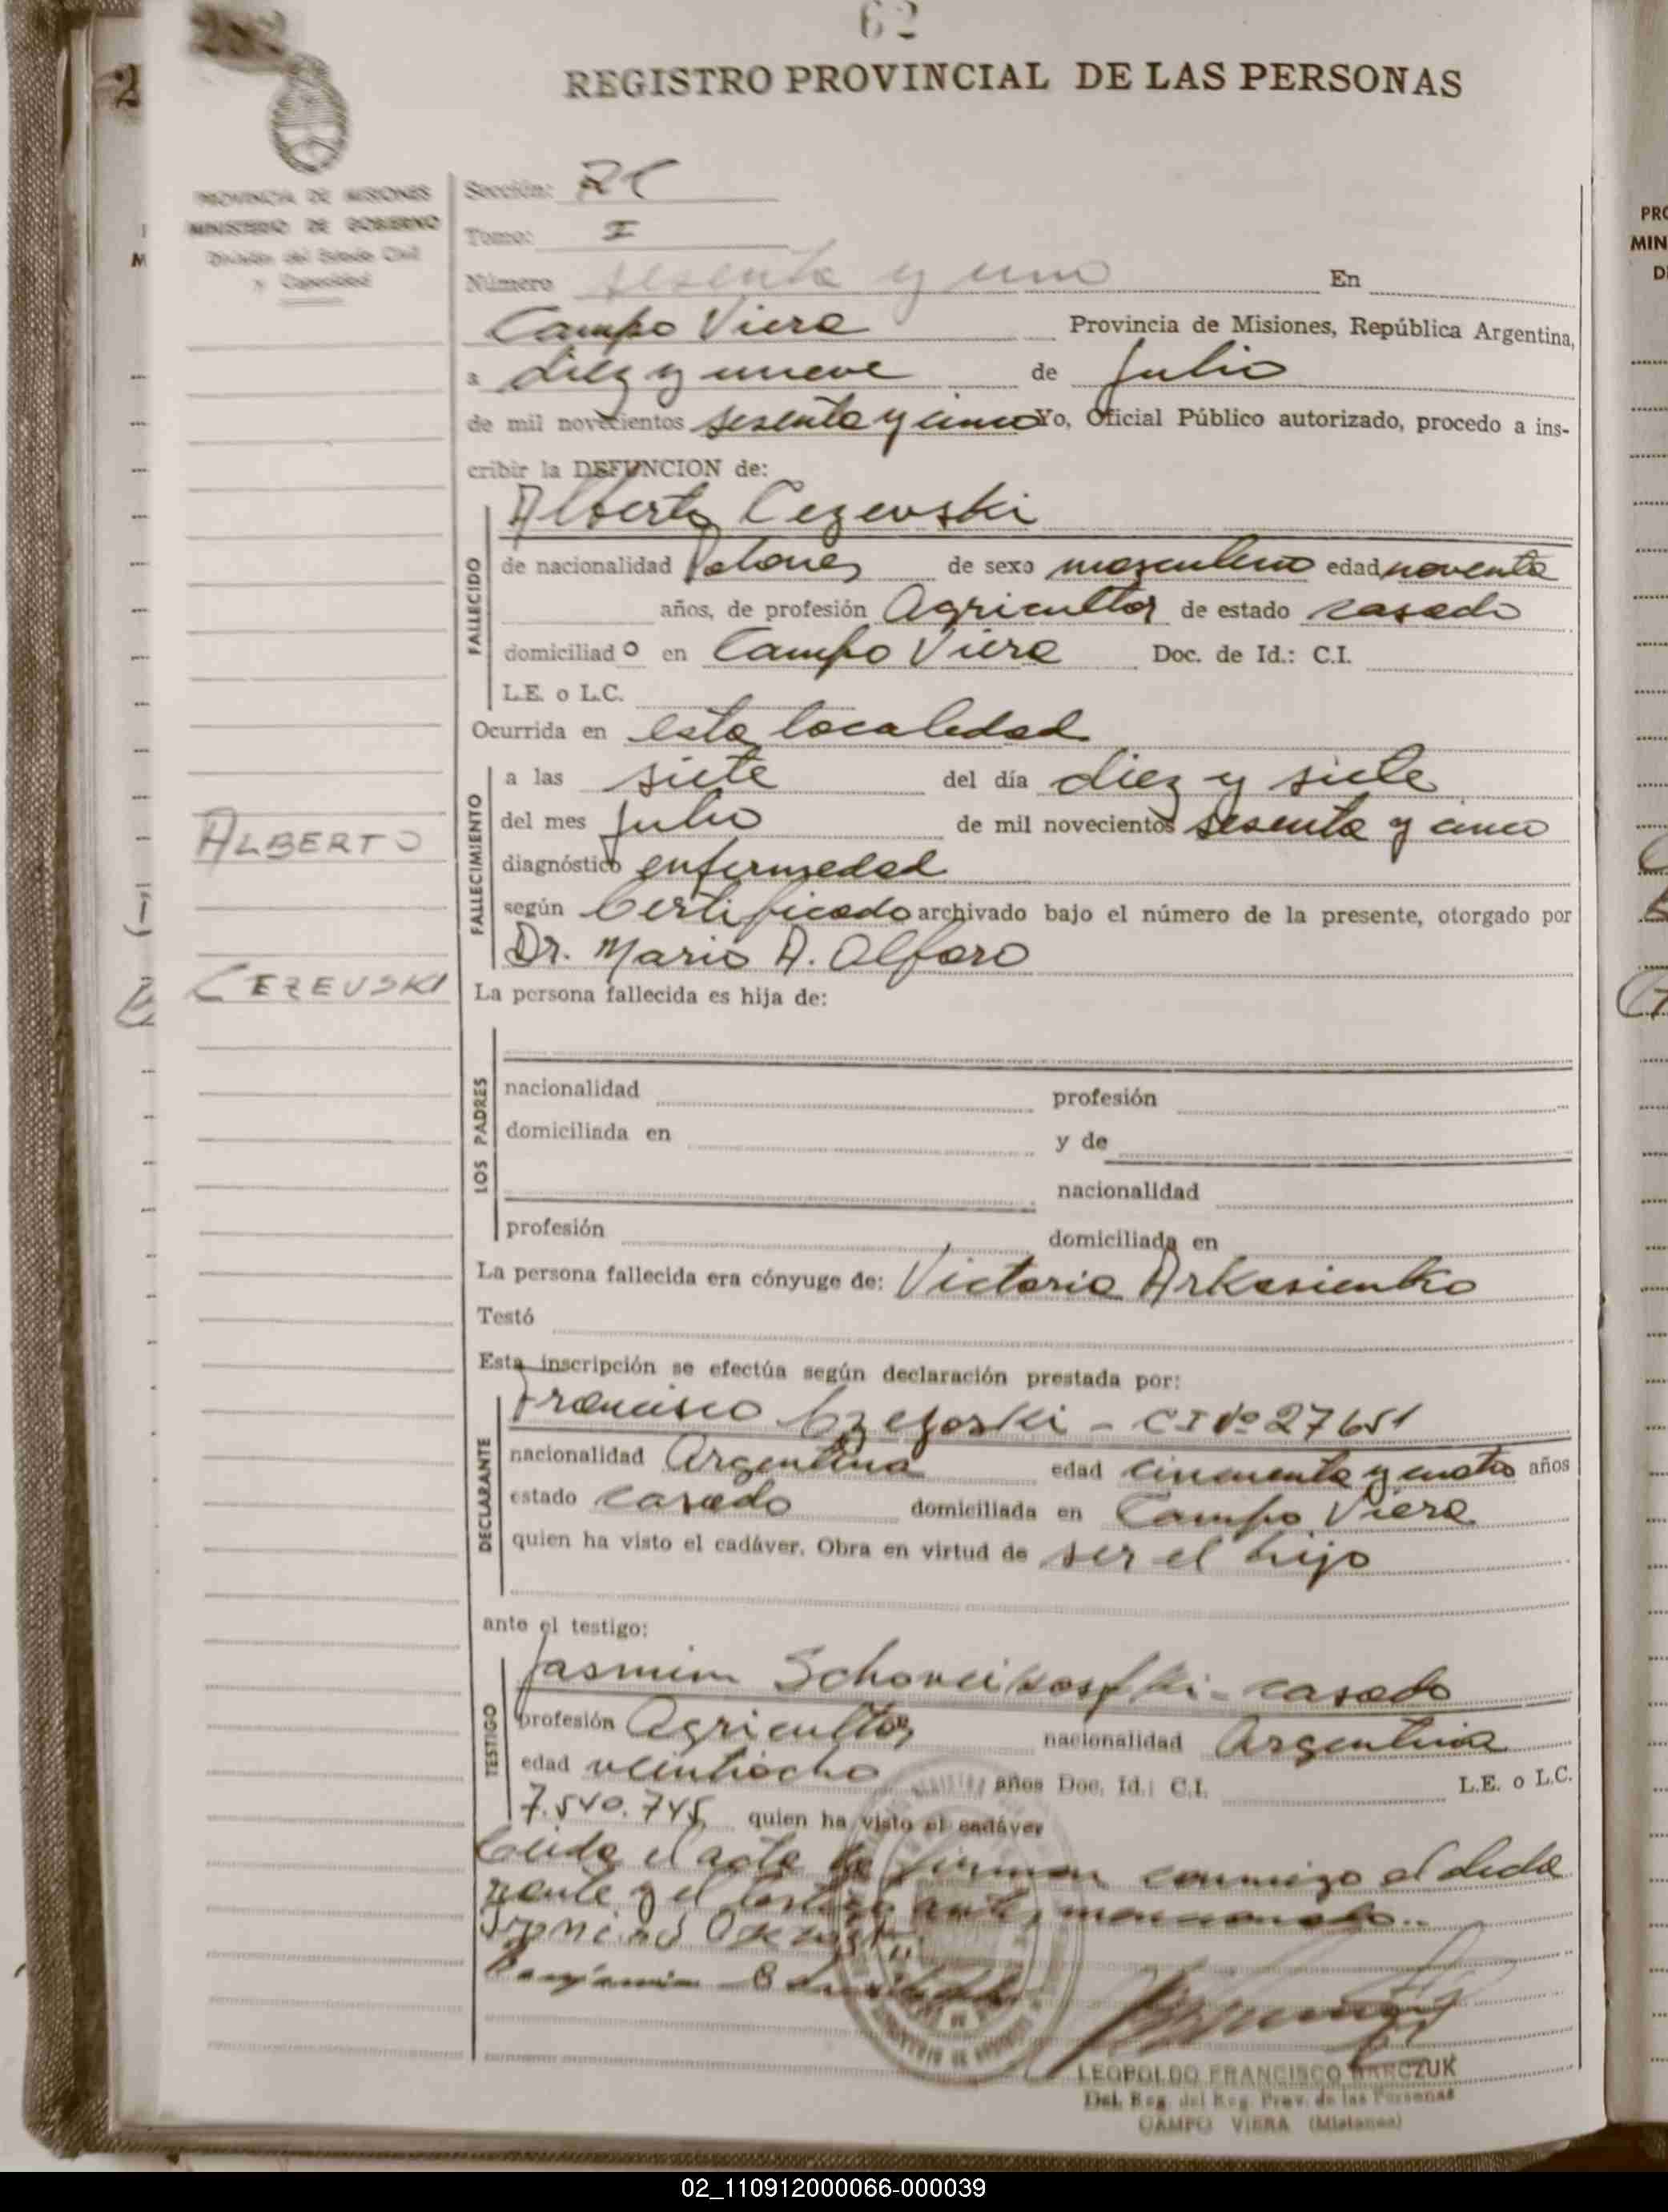 62
REGISTRO PROVINCIAL DE LAS PERSONAS
PROVINCIA DE MISIONES
MINISTERIO DE GOBIERNO
División del Estado Civil
y Capacidad
Sección:
Tomo: I
Número sesenta y uno En
Campo Viera Provincia de Misiones, República Argentina,
a diez y nueve de Julio
de mil novecientos sesenta y cinco Yo, Oficial Público autorizado, procedo a ins-
cribir la DEFUNCION de:
Alberto Cezevski
FALLECIDO
de nacionalidad Polones de sexo masculino edad noventa
años, de profesión Agricultor de estado casado
domiciliado en Campo Viera Doc. de Id.: C.I.
L.E. o L.C.
Ocurrida en esta localidad
FALLECIMIENTO
a las siete del día diez y siete
del mes Julio de mil novecientos sesenta y cinco
ALBERTO
diagnóstico enfermedad
según Certificado archivado bajo el número de la presente, otorgado por
Dr. Mario A. Alfaro
CEZEVSKI
La persona fallecida es hija de:
LOS PADRES
nacionalidad profesión
domiciliada en y de
nacionalidad
profesión domiciliada en
La persona fallecida era cónyuge de: Victoria Arkasienko
Testó
Esta inscripción se efectúa según declaración prestada por:
DECLARANTE
Francisco - CI Nº 27651
nacionalidad Argentina edad cincuenta y cuatro años
estado casado domiciliada en Campo Viera
quien ha visto el cadáver. Obra en virtud de ser el hijo
ante el testigo:
TESTIGO
Jasmin - casado
profesión Agricultor nacionalidad Argentina
edad veintiocho años Doc. Id.: C.I. L.E. o L.C.
7.540.745 quien ha visto el cadáver
Leida el acta la firman conmigo el decla
rante y el testigo antes mencionado..
LEOPOLDO FRANCISCO
Del. Reg. del Reg. Prov. de las Personas
CAMPO VIERA (Misiones)
02_110912000066-000039